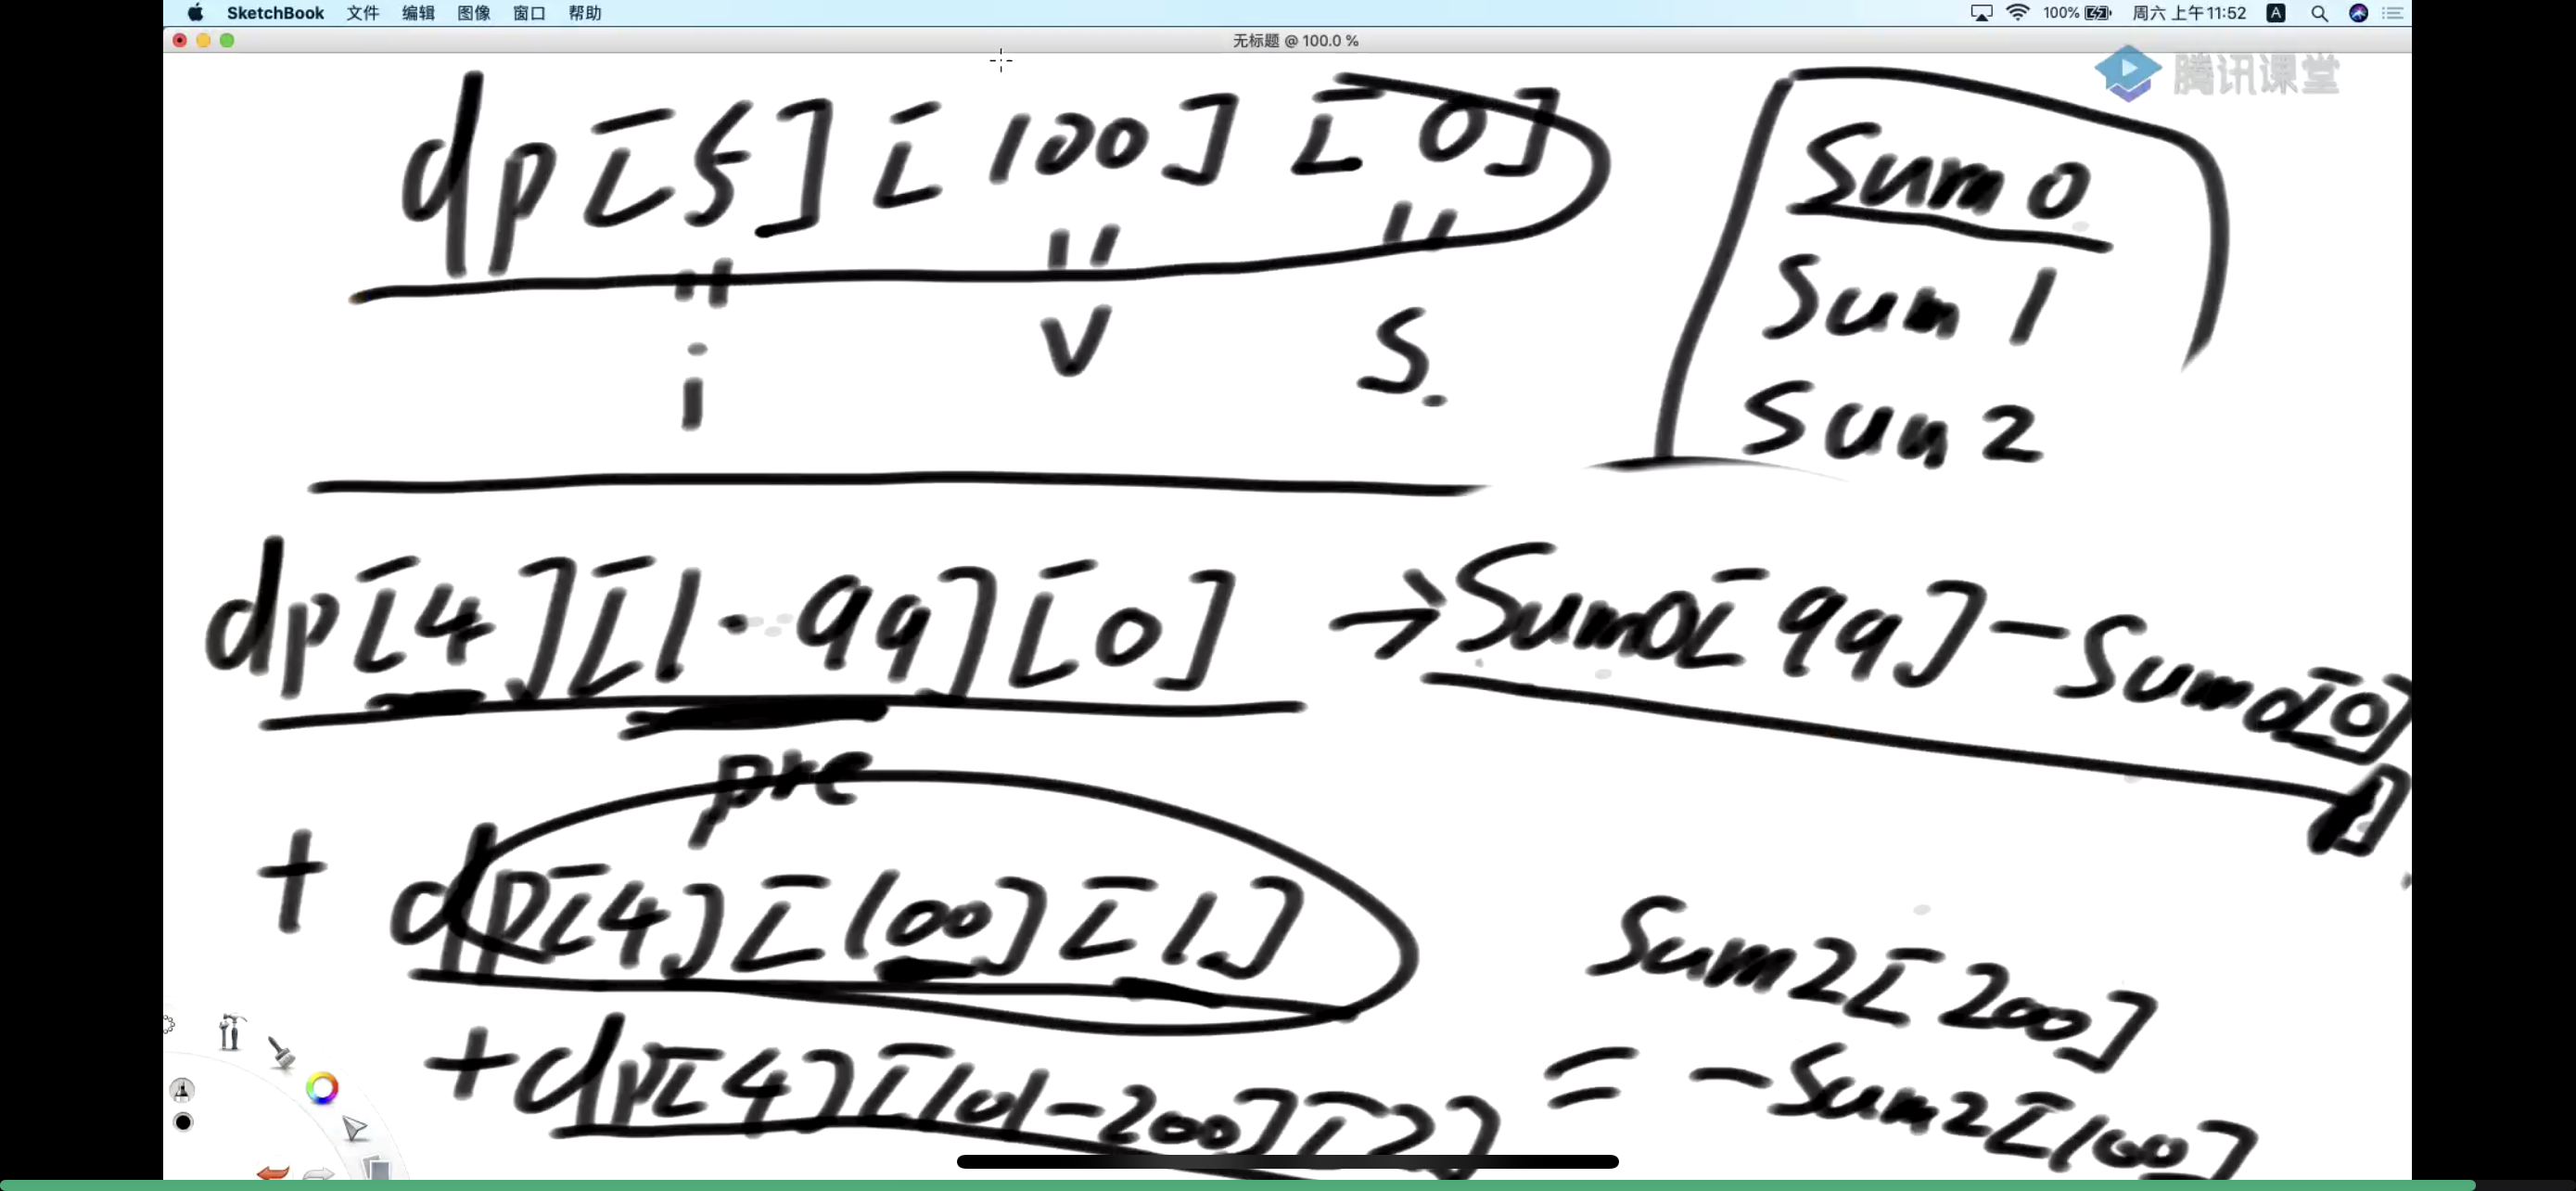 SketchBook 文件 编辑 图像 窗口 帮助 100% 周六 上午11:52 A
无标题 @ 100.0 %
腾讯课堂
dp[5][100][0]
" " "
i v s.
Sum0
Sum1
Sum2
dp[4][1--99][0] → Sum0[99]-Sum0[0]
pre
+ dp[4][100][1]
+dp[4][101-200][2] = Sum2[200]
-Sum2[100]